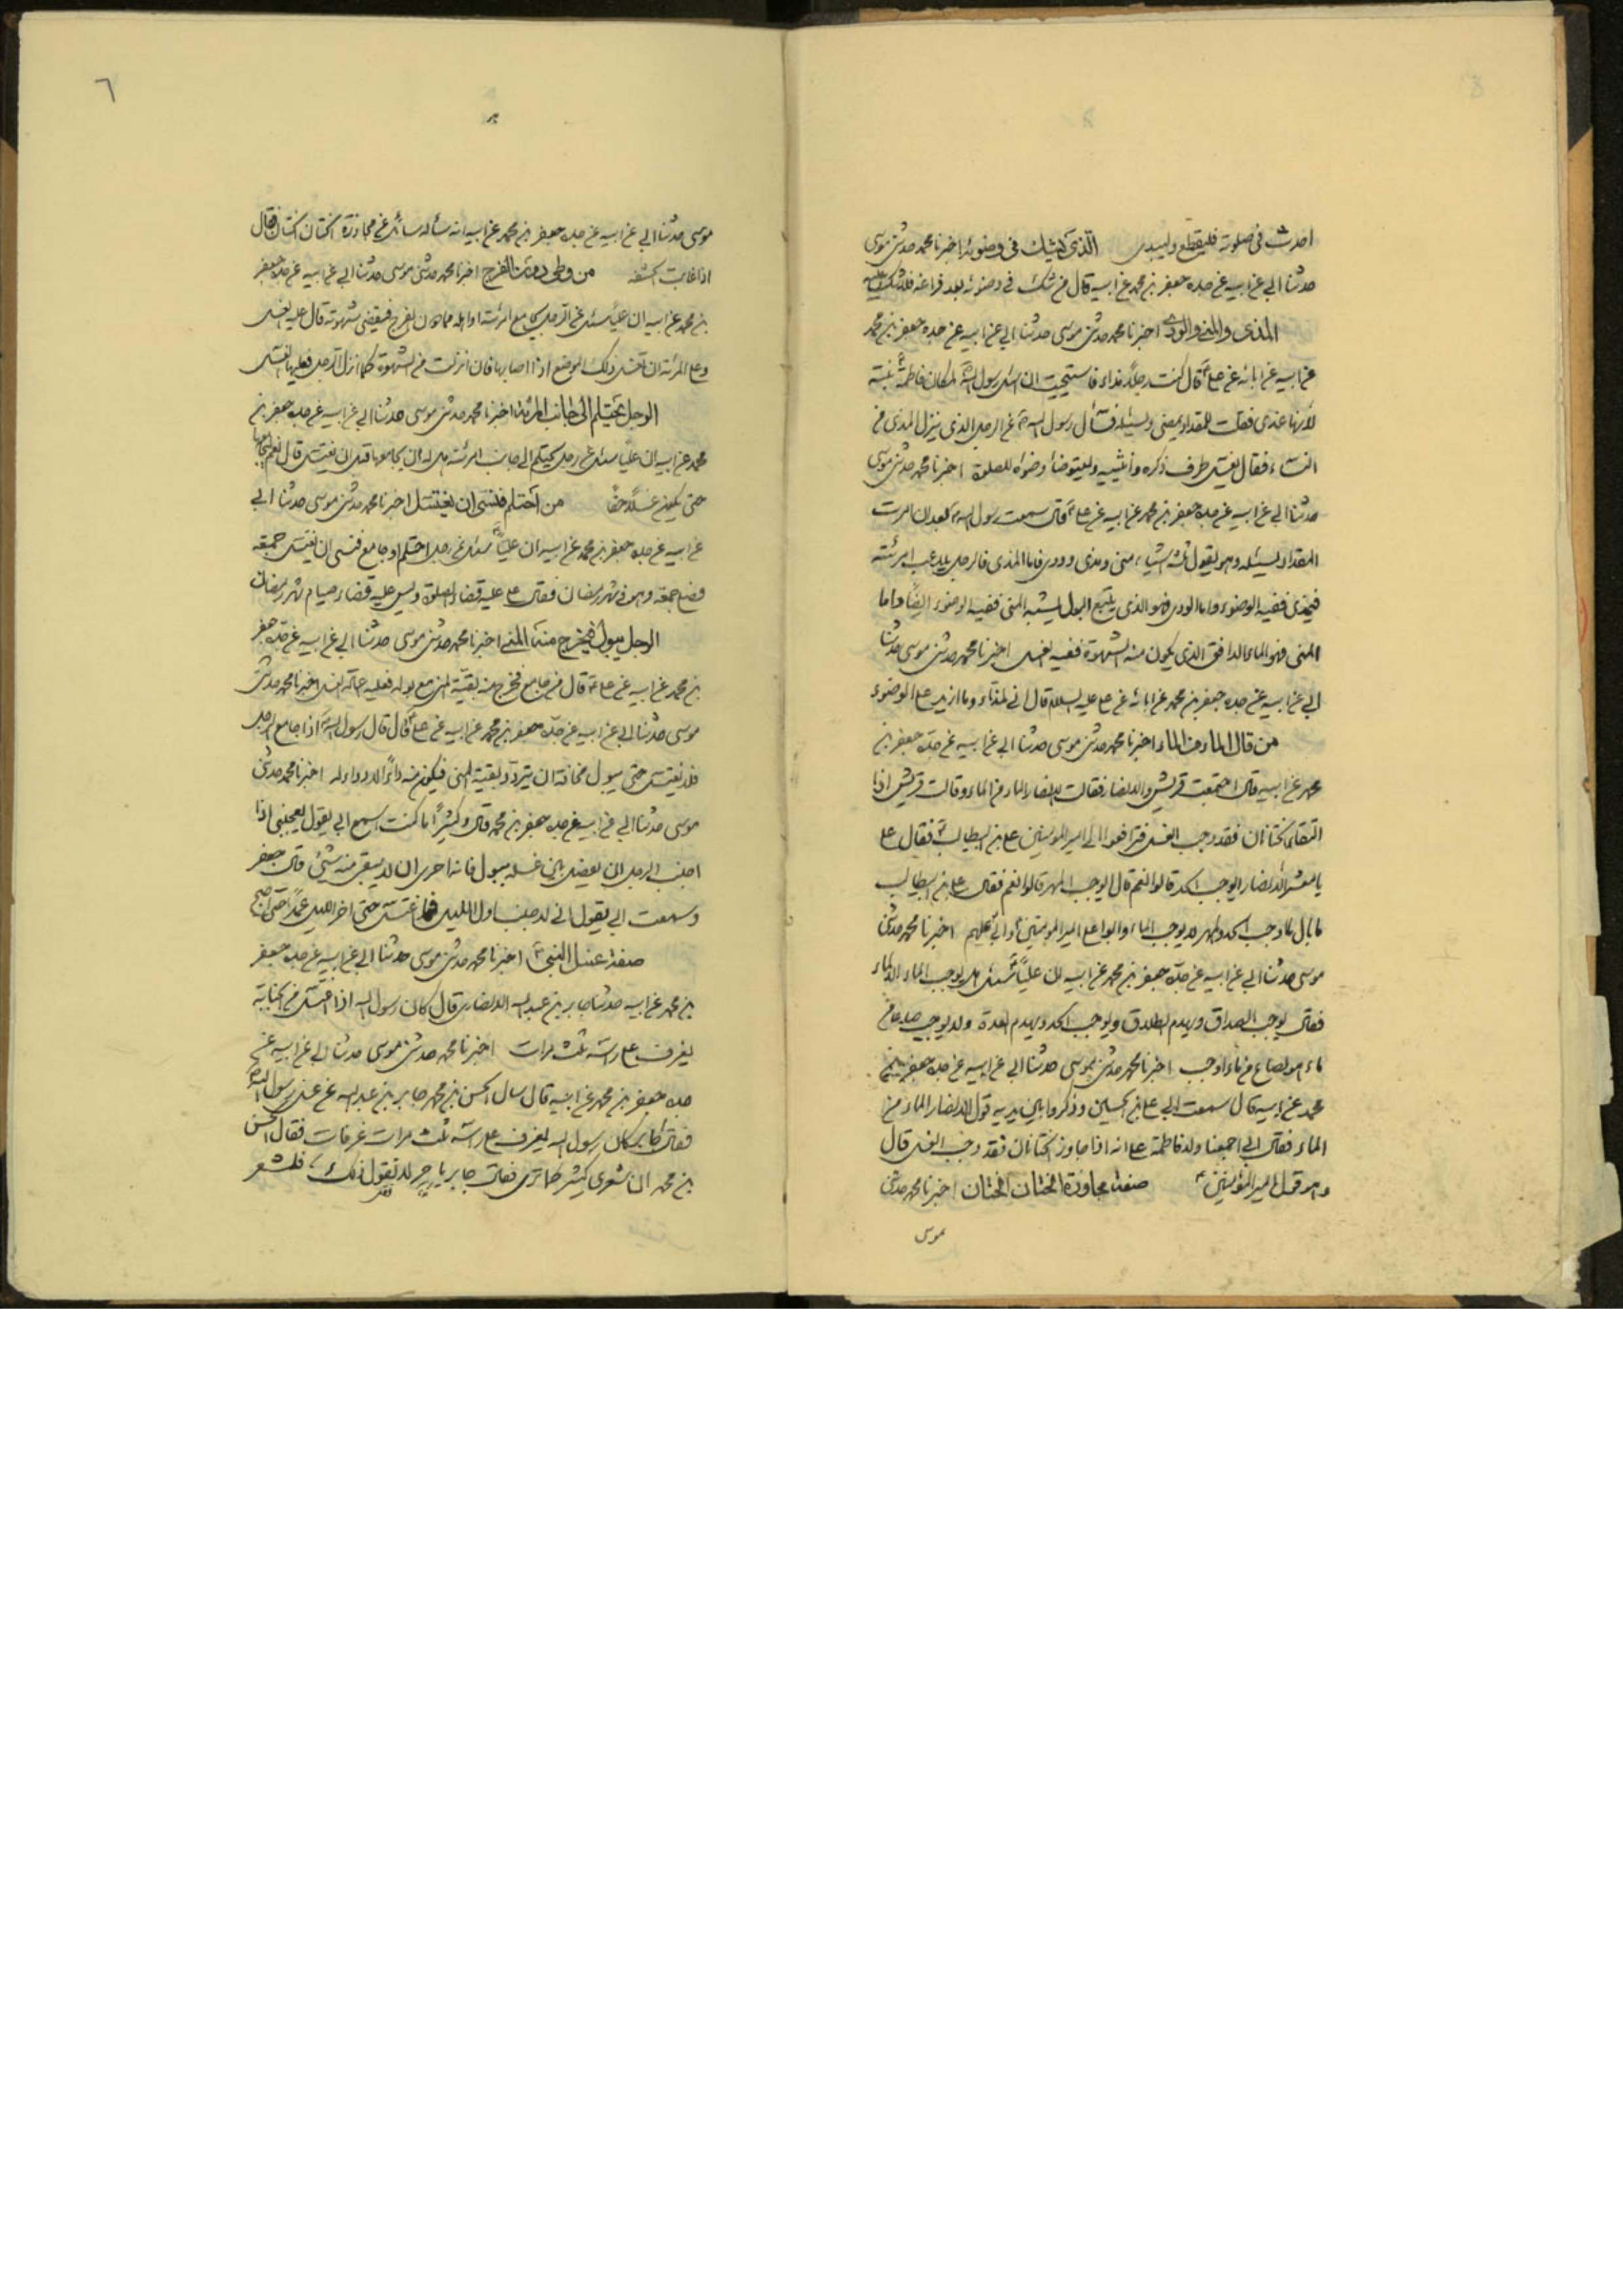 احدث في صلوته فليقطع وليبدء الذي يشك في وضوئه اخبرنا محمد حدثني موسى
حدثنا ابي عن ابيه عن جده جعفر بن محمد عن ابيه قال من شك في وضوئه بعد فراغه فلا شك عليه
المذى والمنى والودى اخبرنا محمد حدثني موسى حدثنا ابي عن ابيه عن جده جعفر بن محمد
عن ابيه عن ابائه عن على قال كنت رجلاً مذاء فاستحييت ان اسئل رسول الله لمكان فاطمة بنته
لأنها عندى فقلت للمقداد يمضى ويسئله فسأل رسول الله عن الرجل الذى ينزل المذى من
النساء فقال يغسل طرف ذكره وأنثييه وليتوضأ وضوءه للصلوة اخبرنا محمد حدثني موسى
حدثنا ابي عن ابيه عن جده جعفر بن محمد عن ابيه عن على قال سمعت رسول الله بعد ان امرت
المقداد يسئله وهو يقول ثلثه اشياء منى ومذى وودى فاما المذى فالرجل يلاعب امرئته
فيمذى ففيه الوضوء واما الودى فهو الذى يتبع البول يشبه المنى ففيه الوضوء ايضاً واما
المنى فهو الماء الدافق الذى يكون منه الشهوة ففيه الغسل اخبرنا محمد حدثني موسى حدثنا
ابي عن ابيه عن جده جعفر بن محمد عن ابائه عن على عليه السلام قال انى لمذاء وما ازيد على الوضوء
من قال الماء من الماء اخبرنا محمد حدثني موسى حدثنا ابي عن ابيه عن جده جعفر بن
محمد عن ابيه قال اجتمعت قريش والانصار فقالت الانصار الماء من الماء وقالت قريش اذا
التقا الختانان فقد وجب الغسل فترافعوا الى امير المؤمنين على بن ابيطالب فقال على
يا معشر الانصار ايوجب الحد قالوا نعم قال ايوجب المهر قالوا نعم فقال على بن ابيطالب
ما بال ما اوجب الحد والمهر لا يوجب الماء وابوا على امير المؤمنين وابى عليهم اخبرنا محمد حدثني
موسى حدثنا ابي عن ابيه عن جده جعفر بن محمد عن ابيه ان علياً سئل هل يوجب الماء الا الماء
فقال يوجب الصداق ويهدم الطلاق ويوجب الحد ويهدم العدة ولا يوجب صاعا من
ماء هو لصاع من ماء اوجب اخبرنا محمد حدثني موسى حدثنا ابي عن ابيه عن جده جعفر بن
محمد عن ابيه قال سمعت ابي على بن الحسين وذكروا بين يديه قول الانصار الماء من
الماء فقال ابي اجمعنا ولد فاطمة على انه اذا جاوز الختانان فقد وجب الغسل قال
وهو قول امير المؤمنين صفة مجاوزة الختان الختان اخبرنا محمد حدثني
موسى
٦
موسى حدثنا ابي عن ابيه عن جده جعفر بن محمد عن ابيه انه سأله سائل عن مجاوزة الختان الختان فقال
اذا غابت الحشفه من وطى دون الفرج اخبرنا محمد حدثني موسى حدثنا ابي عن ابيه عن جده جعفر
بن محمد عن ابيه ان علياً سئل عن الرجل يجامع المرئته او اهله مما دون الفرج فيقضى شهوته قال عليه الغسل
وعلى المرئة ان تغسل ذلك الموضع اذا اصابها فان انزلت من الشهوة كما انزل الرجل فعليها الغسل
الرجل يحتلم الى جانب المرئة اخبرنا محمد حدثني موسى حدثنا ابي عن ابيه عن جده جعفر بن
محمد عن ابيه ان علياً سئل عن رجل يحتلم الى جانب امرئته هل له ان يجامعها قبل ان يغتسل قال نعم
حتى يكون غسلاً حقاً من احتلم فنسى ان يغتسل اخبرنا محمد حدثني موسى حدثنا ابي
عن ابيه عن جده جعفر بن محمد عن ابيه ان علياً سئل عن رجل احتلم او جامع فنسى ان يغتسل جمعه
فصلى جمعه وهو فى شهر رمضان فقال على عليه قضاء الصلوة وليس عليه قضاء صيام شهر رمضان
الرجل يبول فيخرج منه المنى اخبرنا محمد حدثني موسى حدثنا ابي عن ابيه عن جده جعفر
بن محمد عن ابيه عن على قال من جامع فخرج منه بقية المنى مع بوله فعليه اعادة الغسل اخبرنا محمد حدثني
موسى حدثنا ابي عن ابيه عن جده جعفر بن محمد عن ابيه عن على قال قال رسول الله اذا جامع الرجل
فلا يغتسل حتى يبول مخافة ان يتردد بقية المنى فيكون منه داءً لا دواء له اخبرنا محمد حدثني
موسى حدثنا ابي عن ابيه عن جده جعفر بن محمد قال وكثيراً ما كنت اسمع ابي يقول يعجبنى اذا
اجنب الرجل ان يفصل بين غسله ببول فانه احرى ان لا يبقى منه شيئ قال جعفر
وسمعت ابي يقول انى لاجنب اول الليل فما اغتسل حتى اخر الليل عمداً حتى اصبح
صفة غسل النبى اخبرنا محمد حدثني موسى حدثنا ابي عن ابيه عن جده جعفر
بن محمد عن ابيه حدثنا جابر بن عبد الله الانصارى قال كان رسول الله اذا اغتسل من الجنابة
يغرف على رأسه ثلث مرات اخبرنا محمد حدثني موسى حدثنا ابي عن ابيه عن
جده جعفر بن محمد عن ابيه قال سال الحسن بن محمد جابر بن عبد الله عن غسل رسول الله
فقال جابر كان رسول الله يغرف على رأسه ثلث مرات غرفات فقال الحسن
بن محمد ان شعرى كثير كما ترى فقال جابر يا حر لا تقول ذلك فلشعر